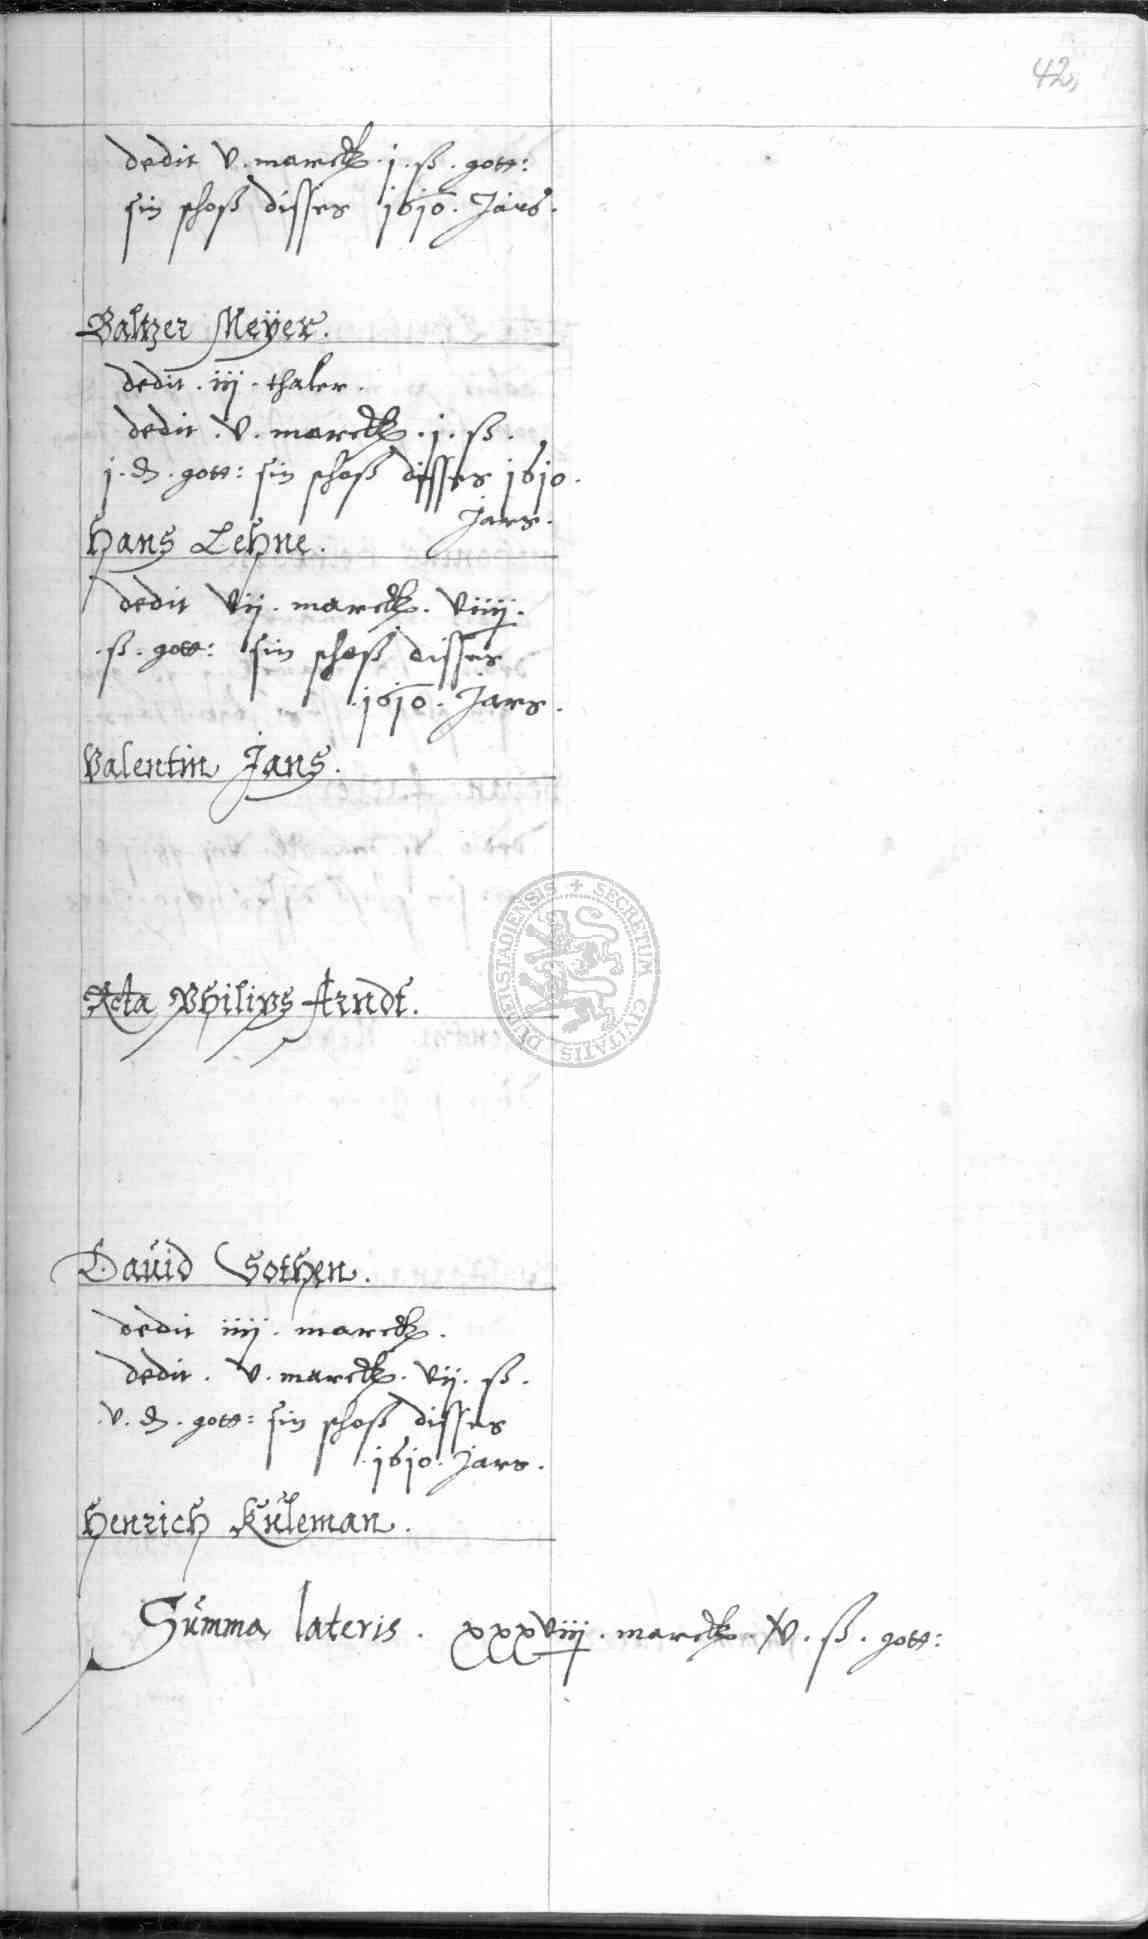 42,
dedit v. marck. j. ß. gott:
sin schoß disses 1610. Jars.
Baltzer Meÿer.
dedit. iij. thaler.
dedit. v. marck. j. ß.
j. ₰. gott: sin schoß disses 1610.
Jars.
Hans Lehne.
dedit vij. marck. viiij.
ß. gott: sin schoß disses
.1610. Jars.
Valentin Jans.
SECRETUM CIVITATIS DUDERSTADIENSIS
Relicta Philips Arndt.
Dauid Gothen.
dedit iiij. marck.
dedit. v. marck. vij. ß.
v. ₰. gott: sin schoß disses
.1610. Jars.
Henrich Kuleman.
Summa lateris. xxxviij. marck. xv. ß. gott: